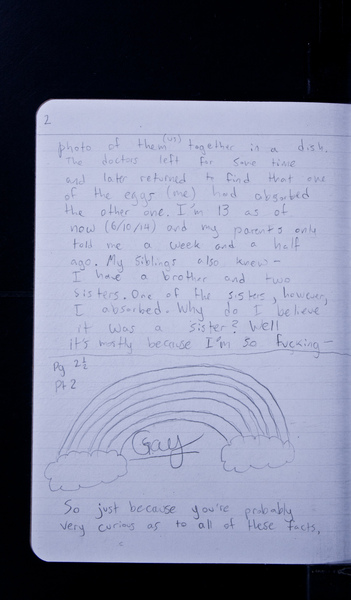 2
photo of them (us) together in a dish.
The doctors left for some time
and later returned to find that one
of the eggs (me) had absorbed
the other one. I'm 13 as of
now (6/10/14) and my parents only
told me a week and a half
ago. My siblings also knew -
I have a brother and two
sisters. One of the sisters, however,
I absorbed. Why do I believe
it was a sister? Well
it's mostly because I'm so fucking -
Pg 2½
Pt 2
Gay
So just because you're probably
very curious as to all of these facts,